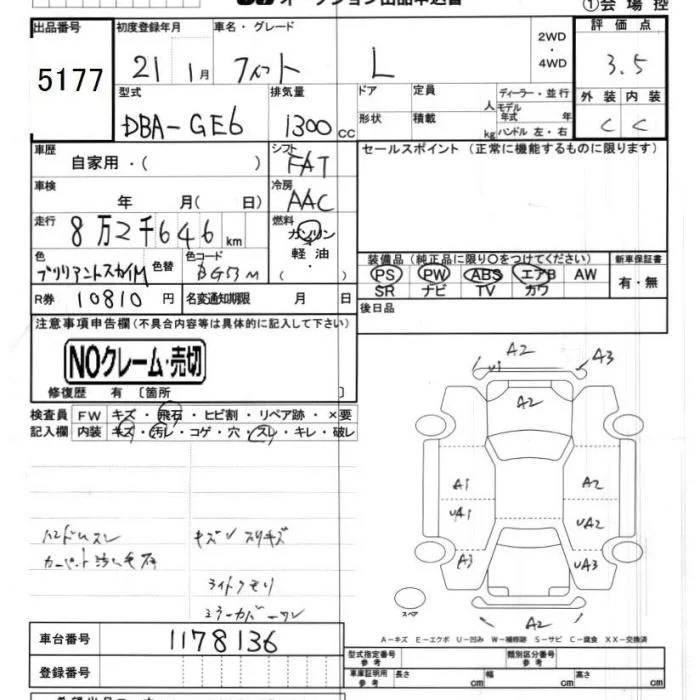 オークション出品申込書 ①会場控
出品番号 初度登録年月 車名・グレード 2WD・4WD 評価点
5177 21 1月 フィット L 3.5
型式 排気量 ドア 定員 人 ディーラー・並行 外装 内装
DBA-GE6 1300cc 形状 積載 kg モデル年式 年 ハンドル 左・右 C C
車歴 シフト セールスポイント (正常に機能するものに限ります)
自家用・( ) FAT
車検 冷房
年 月( 日) AAC
走行 燃料
8万2千646km ガソリン
軽油・( )
色 色替 色コード 装備品 (純正品に限り○をつけてください) 新車保証書
ブリリアントスカイM BG53M PS PW ABS エアB AW 有・無
SR ナビ TV カワ
R券 10810円 名変通知期限 月 日 後日品
注意事項申告欄(不具合内容等は具体的に記入して下さい)
NOクレーム・売切
修復歴 有 〔箇所 〕
検査員 FW キズ・飛石・ヒビ割・リペア跡・×要
記入欄 内装 キズ・汚レ・コゲ・穴・スレ・キレ・破レ
A2
U1 A3
A2
A1 A2
UA1 UA2
A3 UA3
A2
スペア
ハンドルスレ キズU スリキズ
カーペット
ライトクモリ
ミラーカバー
A-キズ E-エクボ U-凹み W-補修跡 S-サビ C-腐食 XX-交換済
車台番号 1178136
型式指定番号 参考 類別区分番号 参考
登録番号 車庫証明用 参考 長さ cm 幅 cm 高さ cm